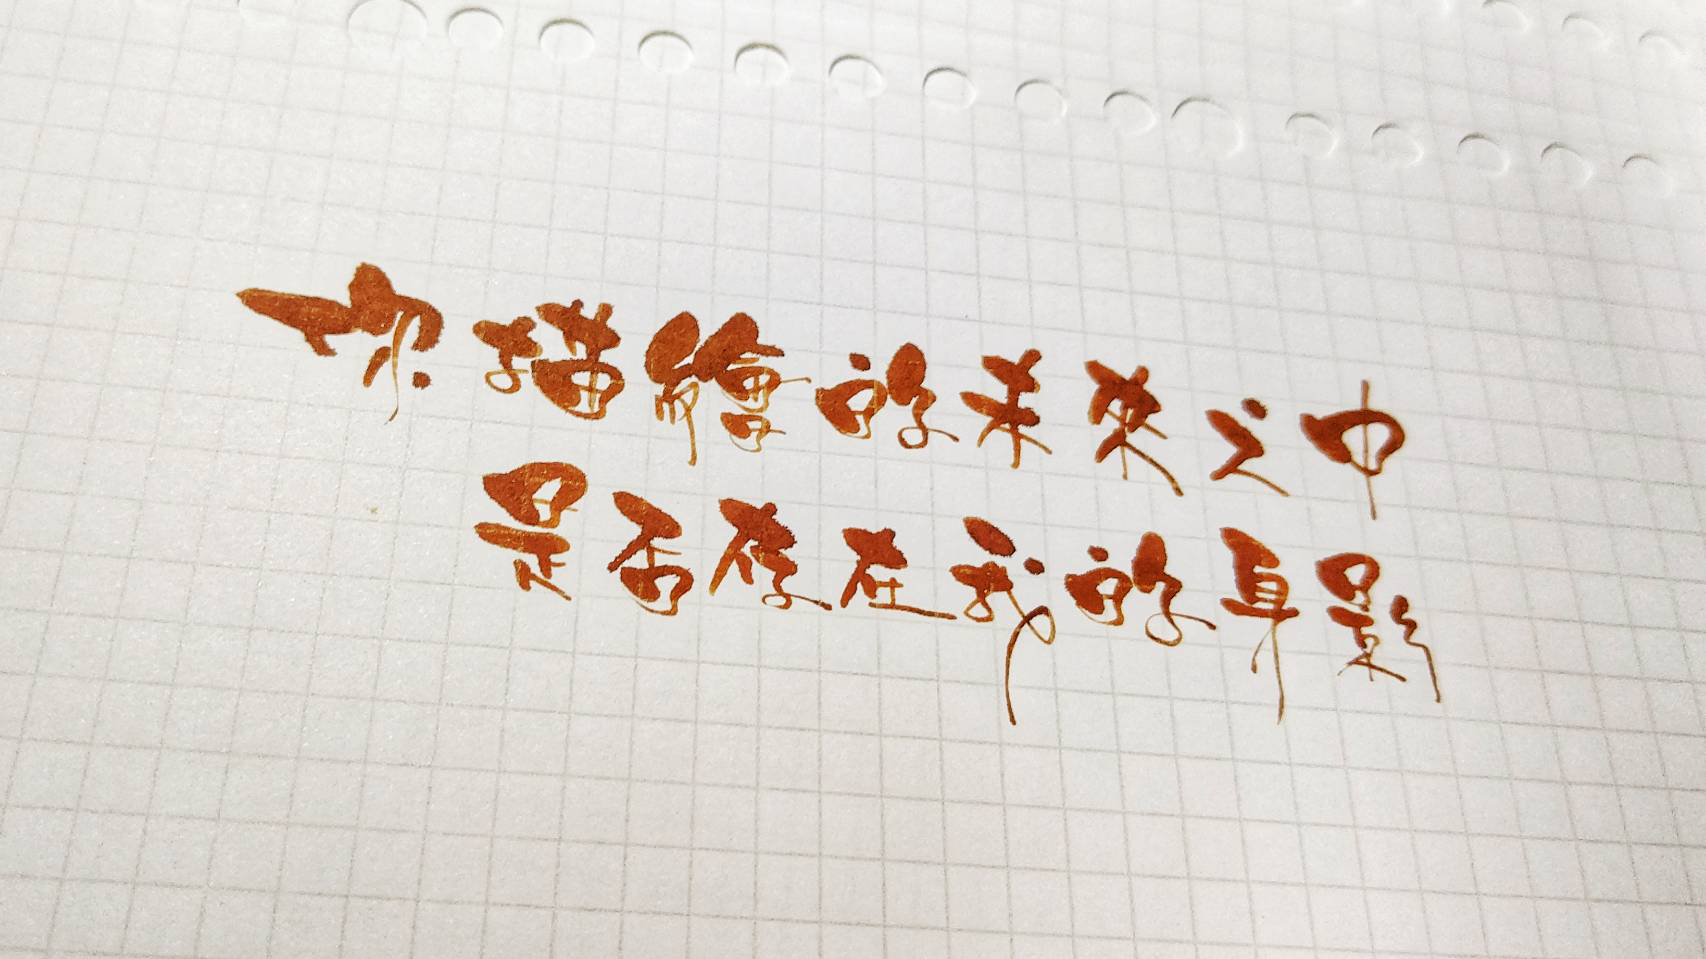 你描繪的未來之中
是否存在我的身影